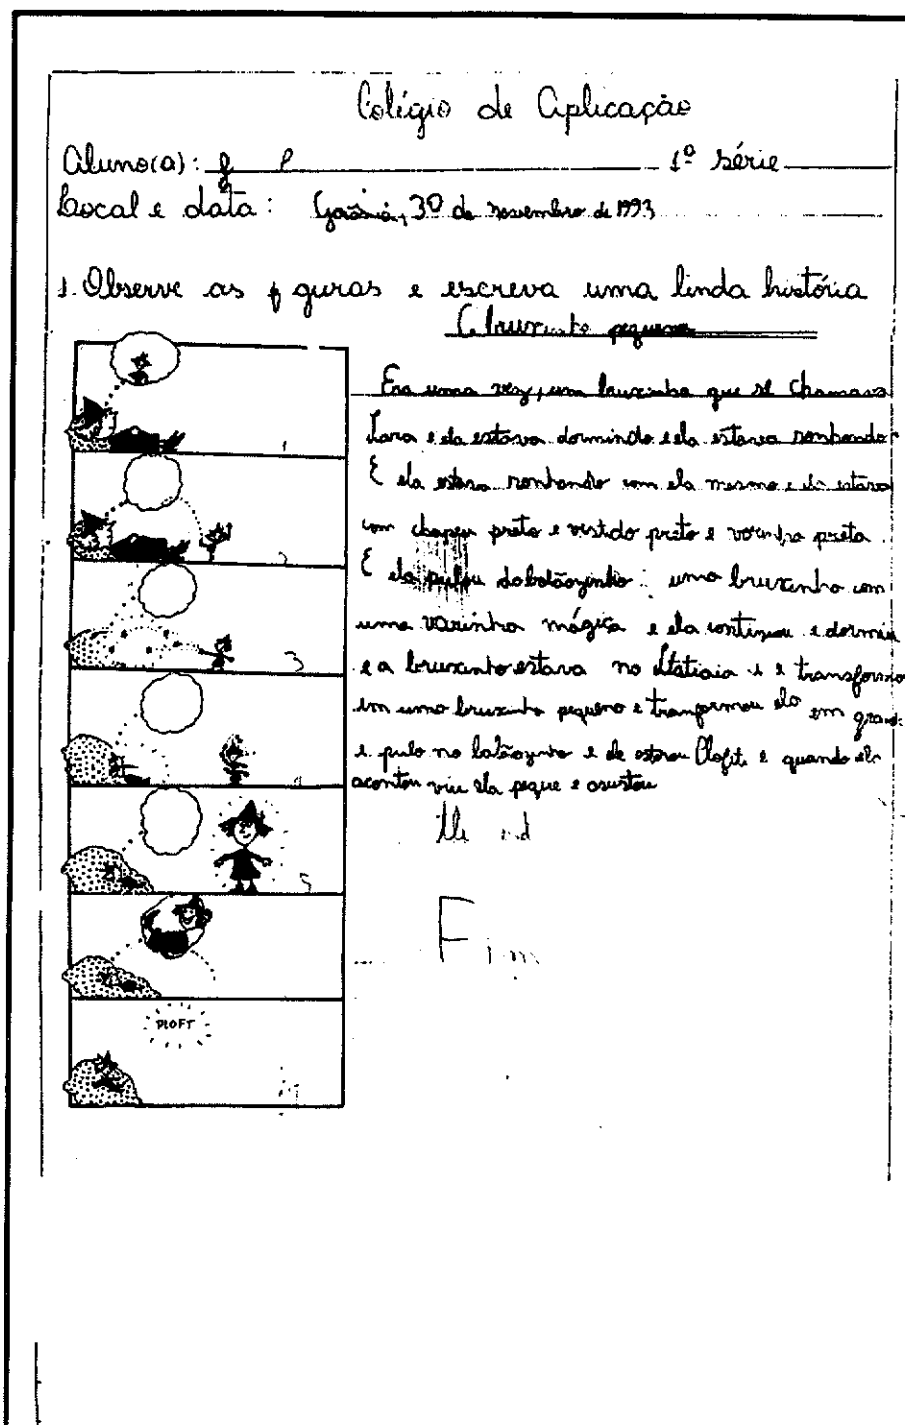 Colégio de Aplicação
Aluno(a): 1ª série
Local e data: Goiânia, 30 de novembro de 1993
1. Observe as figuras e escreva uma linda história
A bruxinha pequena
Era uma vez, um bruxinha que se chamava
Lara e ela estava dormindo e ela estava sonhando.
E ela estava sonhando com ela mesmo e ela estava
com chapeu preto e vistido preto e preta.
E ela pulou do balãozinho: uma bruxinha com
uma varinha mágica e ela continuou e dormiu
e a bruxinha estava no e transformo
em uma bruxinha pequeno e ela em grande
e pulo no balãozinho e ele estorou Ploft e quando ela
acontou viu ela peque e asustou
The end
Fim
1
2
3
4
5
PLOFT
7